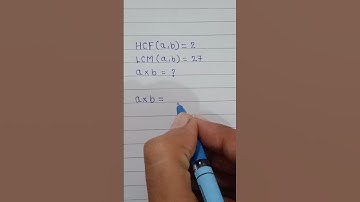 HCF(a,b) = 2
LCM(a,b) = 27
a × b = ?
a × b =